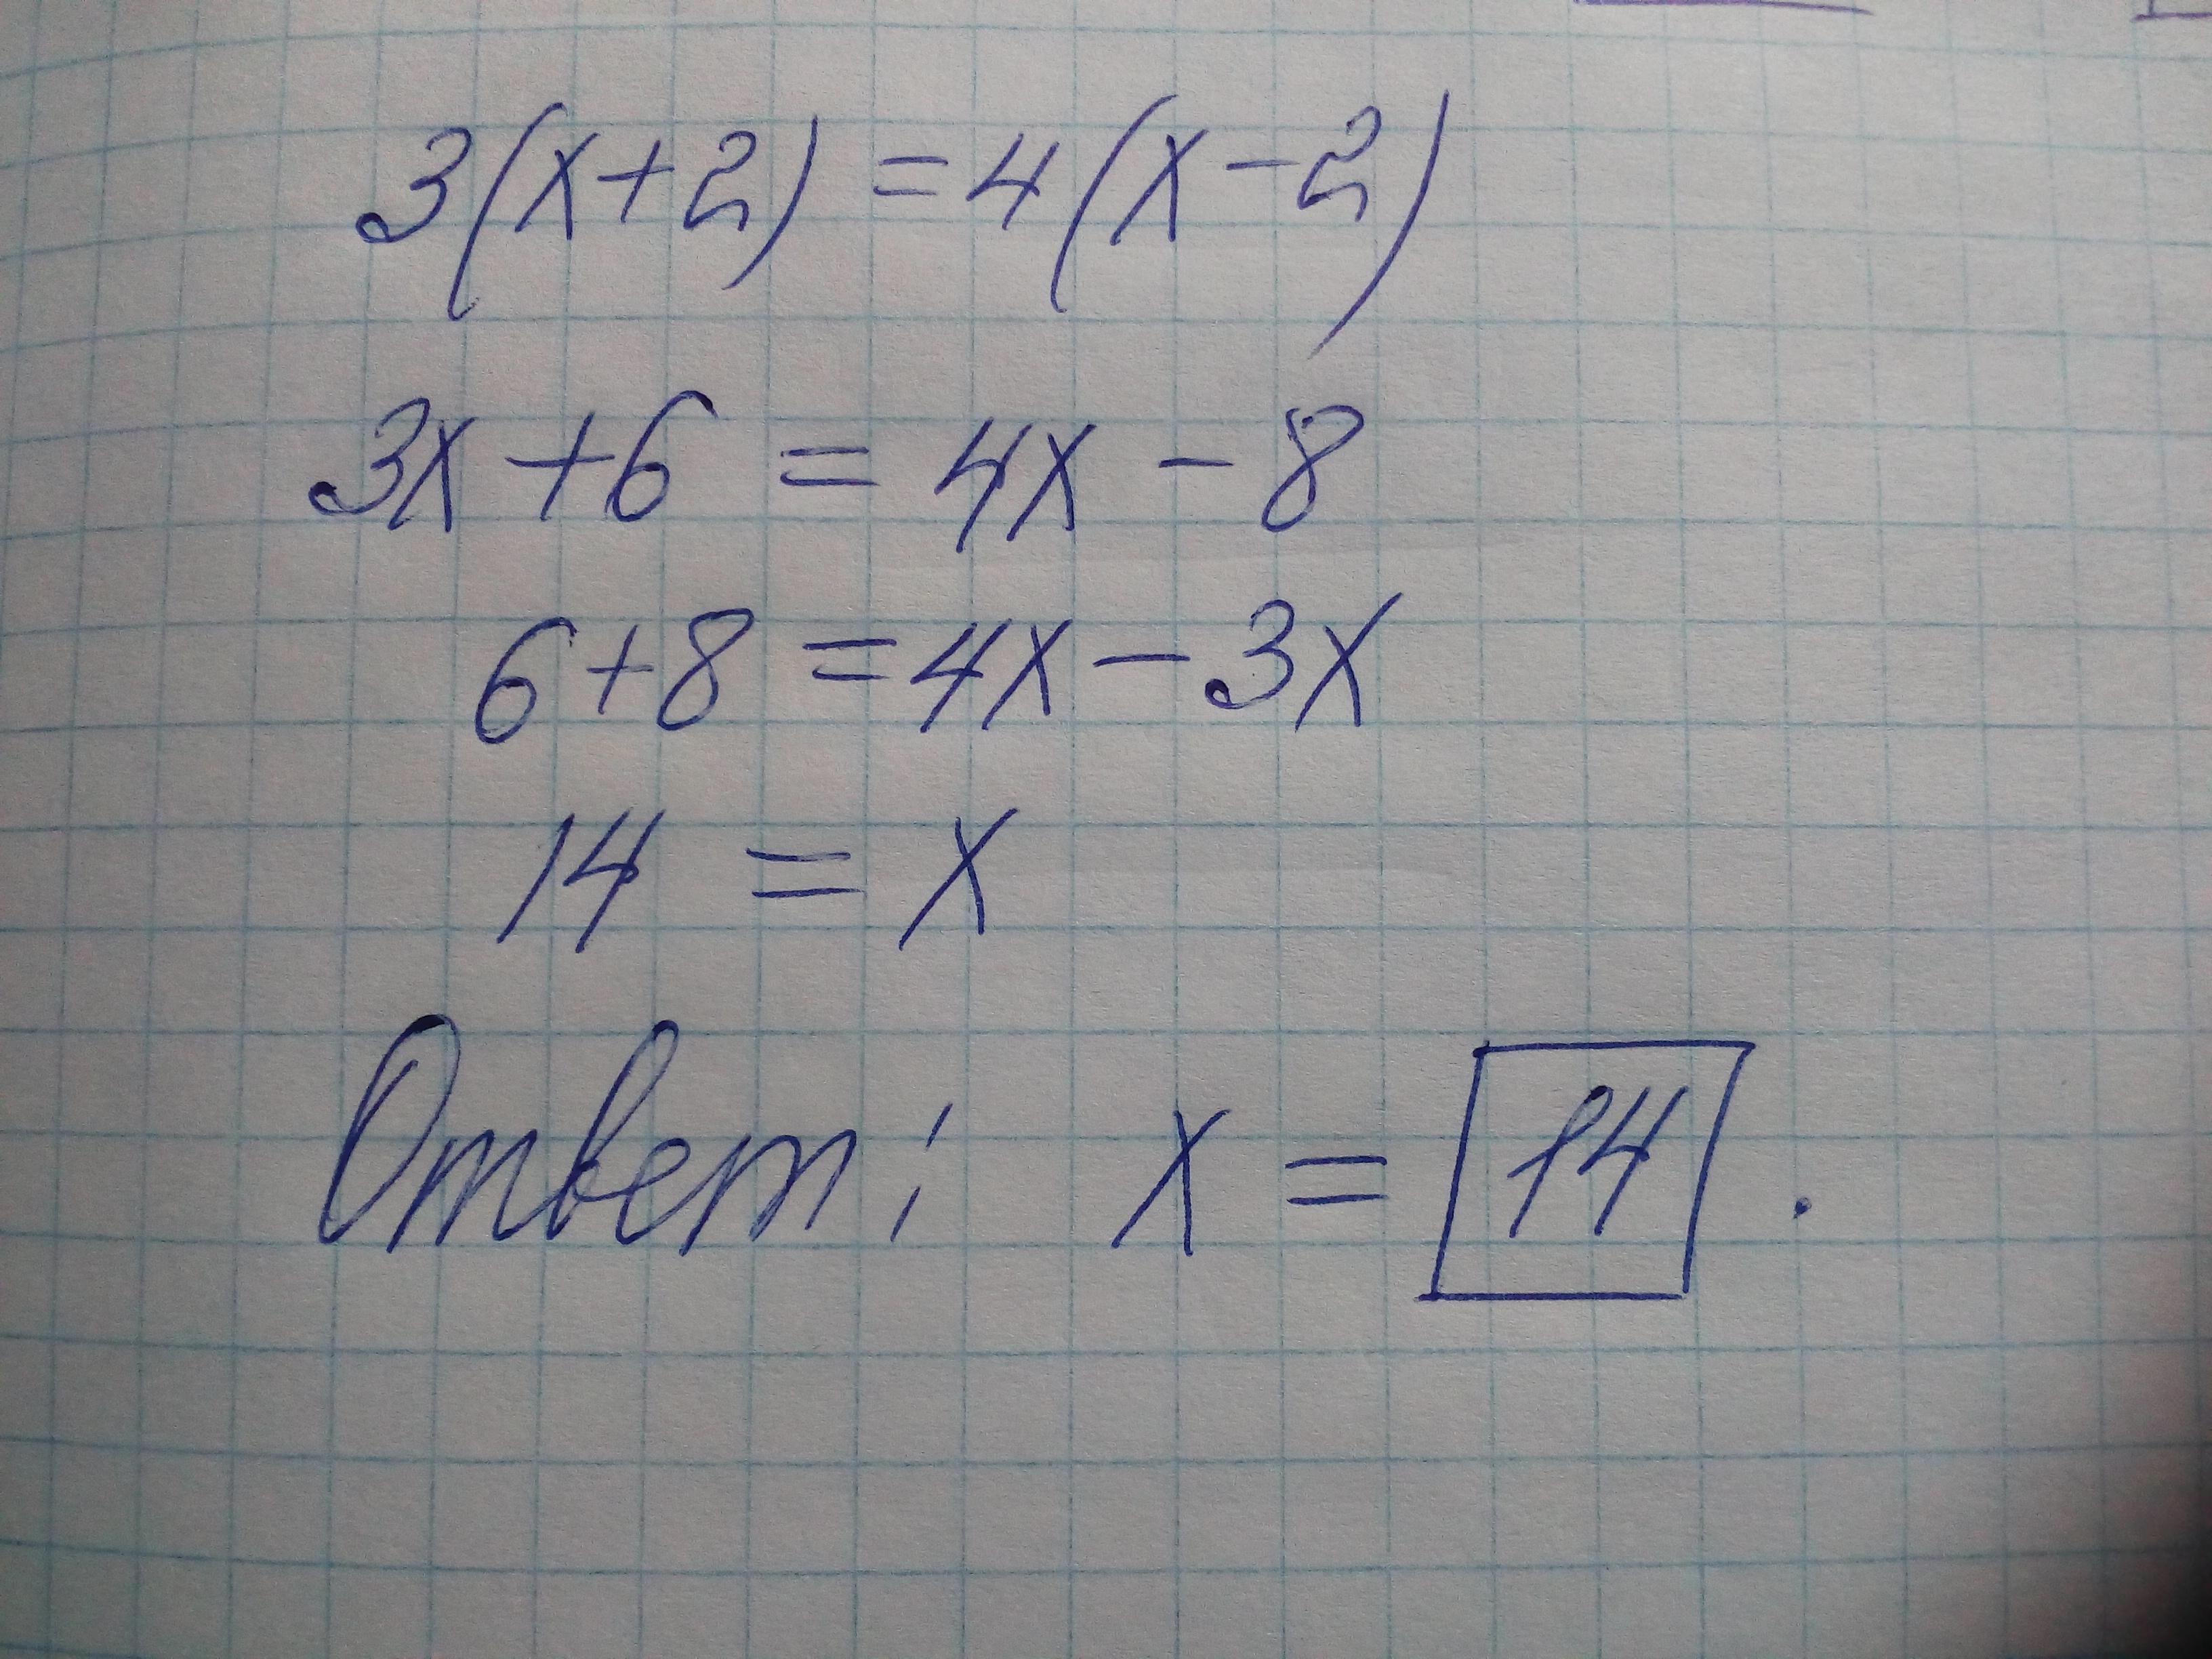 3(x+2) = 4(x-2)
3x+6 = 4x-8
6+8 = 4x-3x
14 = x
Ответ: x = 14.